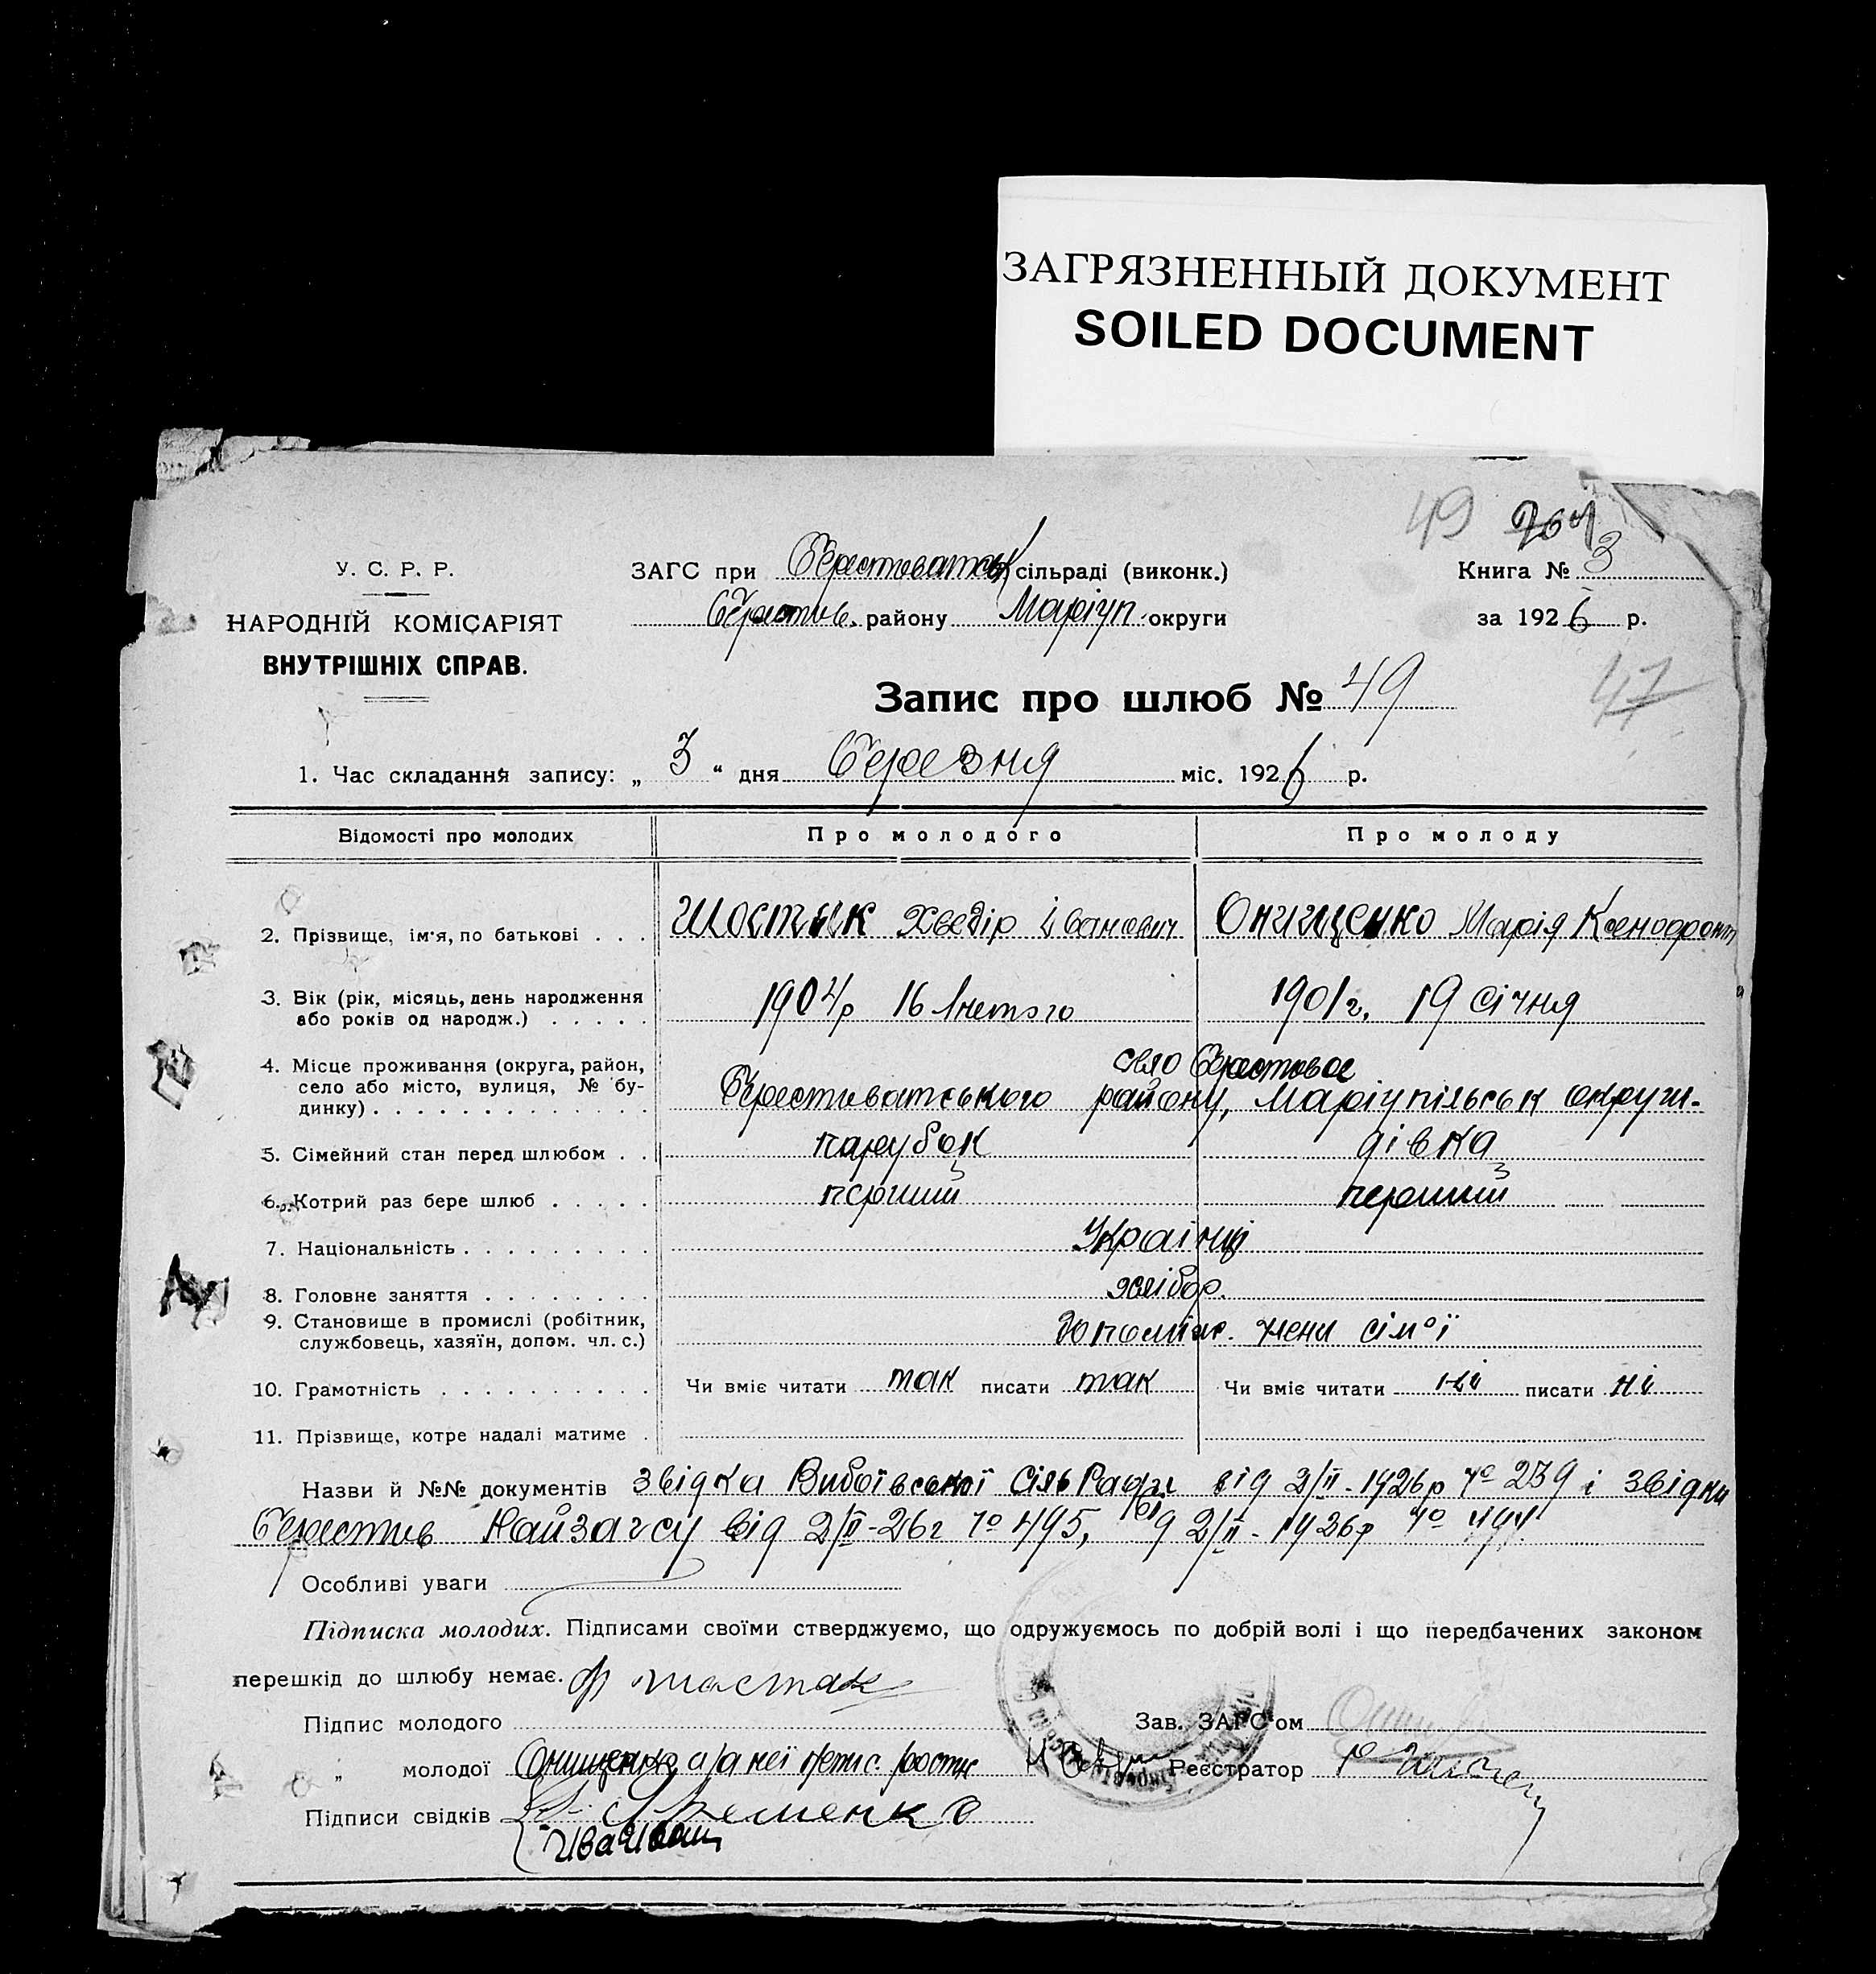 ЗАГРЯЗНЕННЫЙ ДОКУМЕНТ
SOILED DOCUMENT
49
У. С. Р. Р.
НАРОДНІЙ КОМІСАРІЯТ
ВНУТРІШНІХ СПРАВ.
ЗАГС при Берестоватськ сільраді (виконк.)
Берестов. району Маріуп. округи
Книга № 3
за 1926 р.
47
Запис про шлюб № 49
1. Час складання запису: „ 3 “ дня Березня міс. 1926 р.
Відомості про молодих Про молодого Про молоду
2. Прізвище, ім'я, по батькові . . . Шостак Хведір Іванович Онищенко Марія Ксенофонт
3. Вік (рік, місяць, день народження
або років од народж.) . . . . . 1904р 16 Лютого 1901г. 19 Січня
4. Місце проживання (округа, район,
село або місто, вулиця, № бу-
динку) . . . . . . . . . . . . .
село Берестовое
Берестоватського району, Маріупільськ округи.
5. Сімейний стан перед шлюбом . . парубок дівка
6. Котрий раз бере шлюб . . . . . перший перший
7. Національність . . . . . . . . . Українці
8. Головне заняття . . . . . . . . хлібор.
9. Становище в промислі (робітник,
службовець, хазяїн, допом. чл. с.) допоміж. члени сім'ї
10. Грамотність . . . . . . . . . . Чи вміє читати так писати так Чи вміє читати ні писати ні
11. Прізвище, котре надалі матиме .
Назви й №№ документів звідка сіль Ради від 2/II-1926р № 239 і звідки
Берестов Райзагсу від 2/II-26г № 495, від 2/II-1926р № 494.
Особливі уваги
Підписка молодих. Підписами своїми стверджуємо, що одружуємось по добрій волі і що передбачених законом
перешкід до шлюбу немає. Ф Шостак
Підпис молодого Зав. ЗАГС'ом
„ молодої Онищенко, а за неї Реєстратор
Підписи свідків